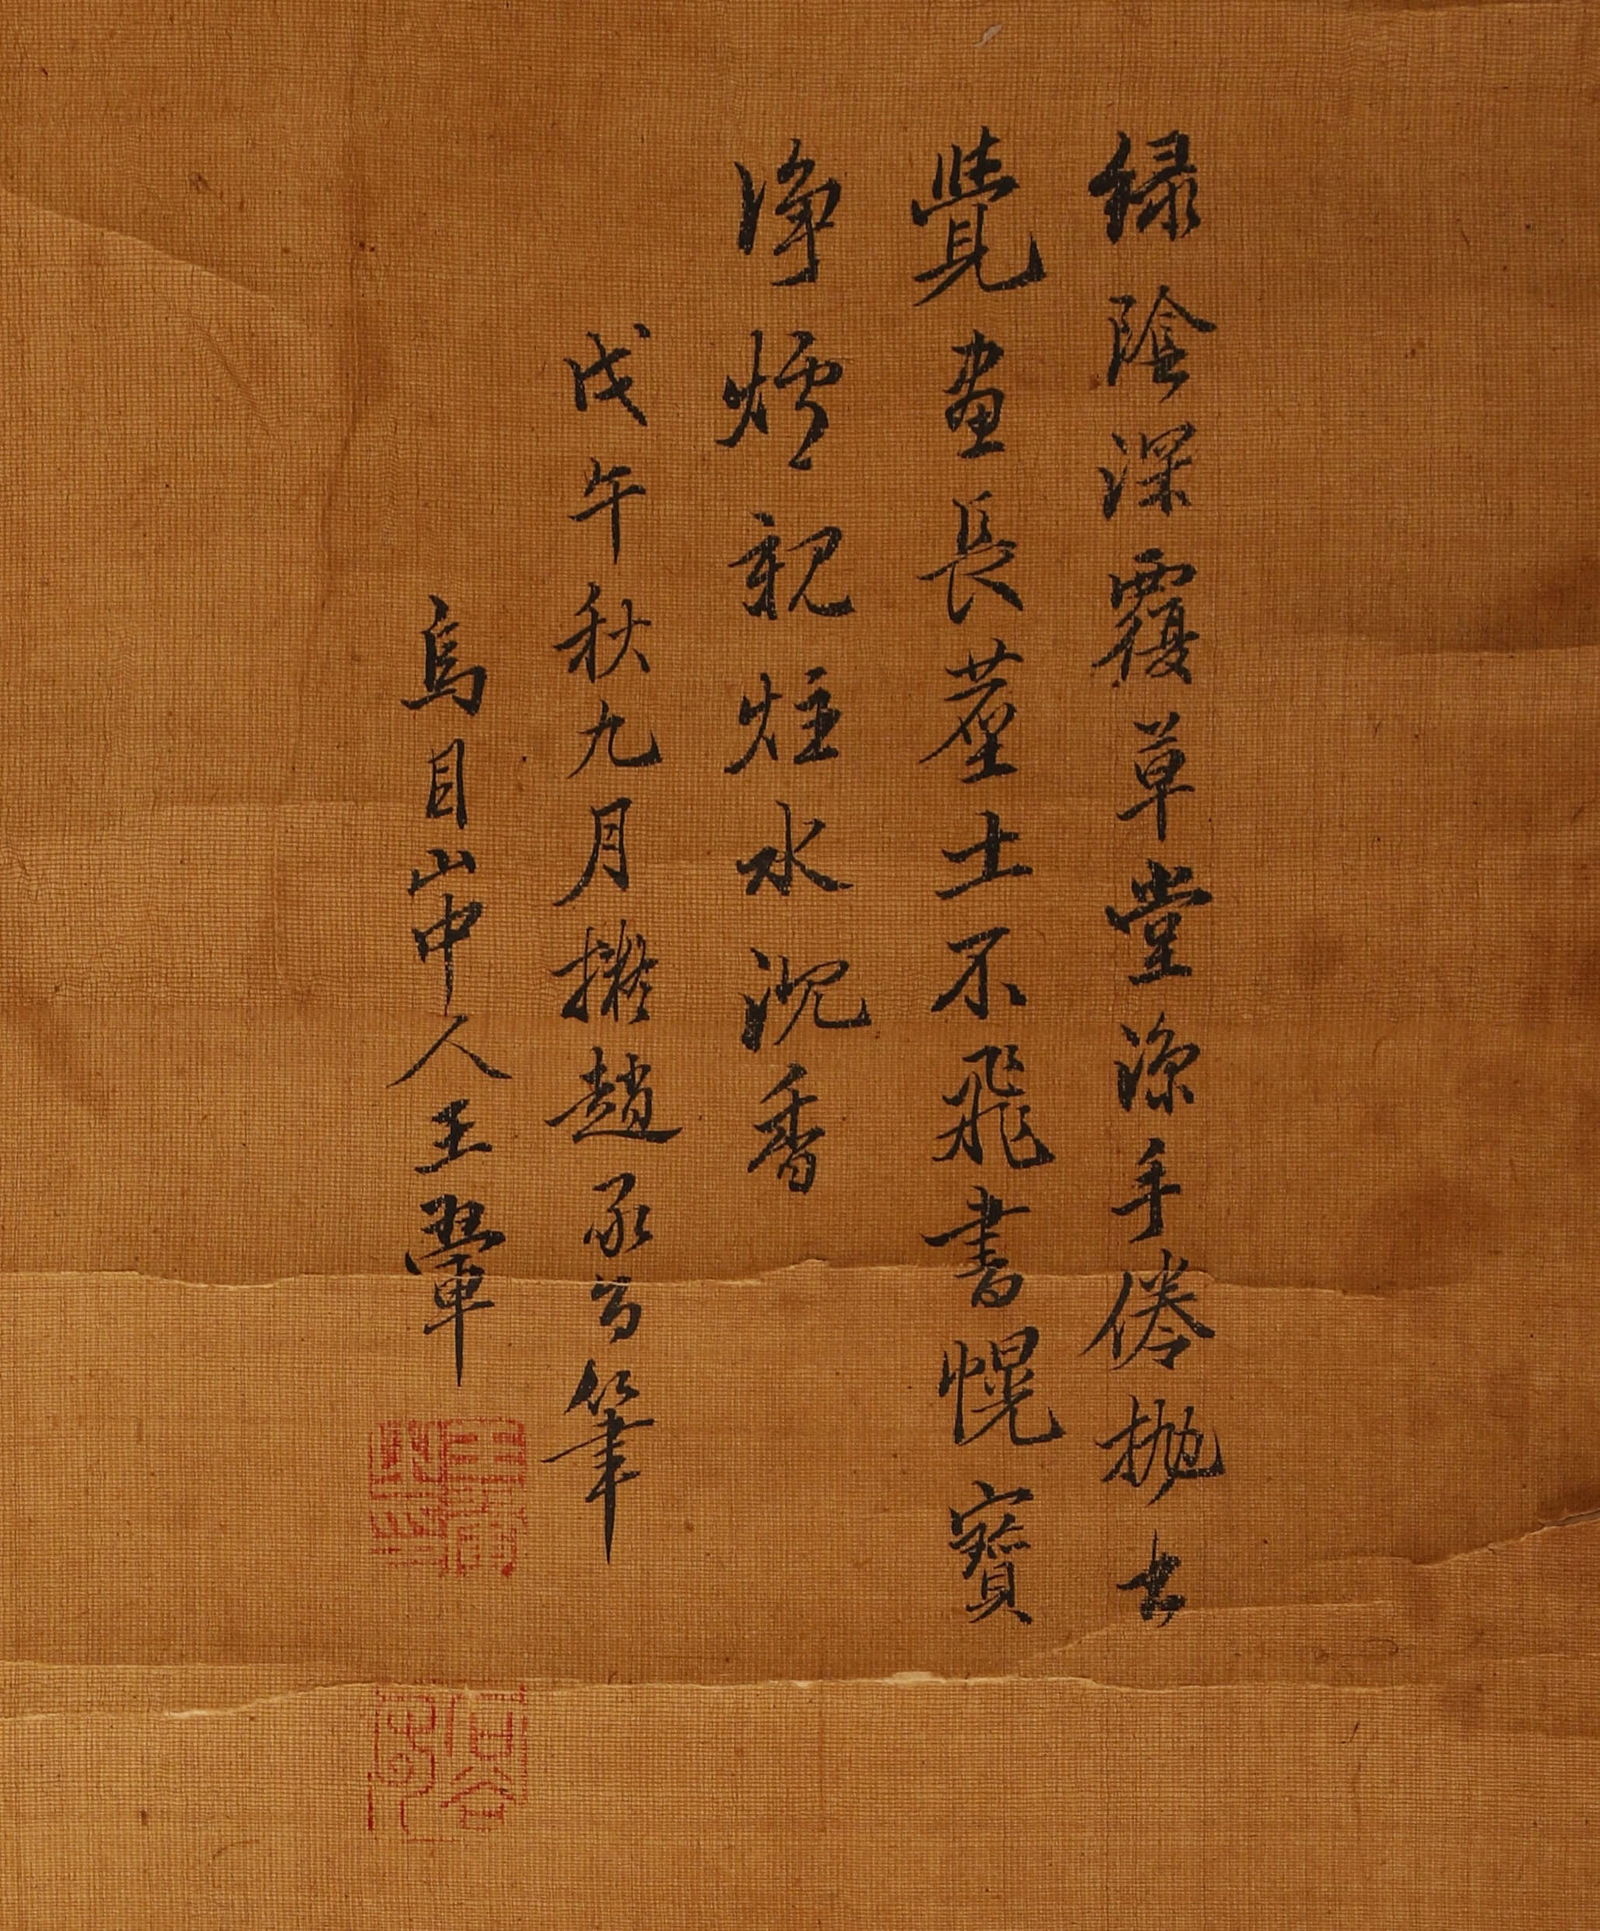 緑陰深覆草堂涼手倦拋書
覺晝長塵土不飛書幌寶
淨爐親炷水沈香
戊午秋九月擬趙承旨筆
烏目山中人王翬